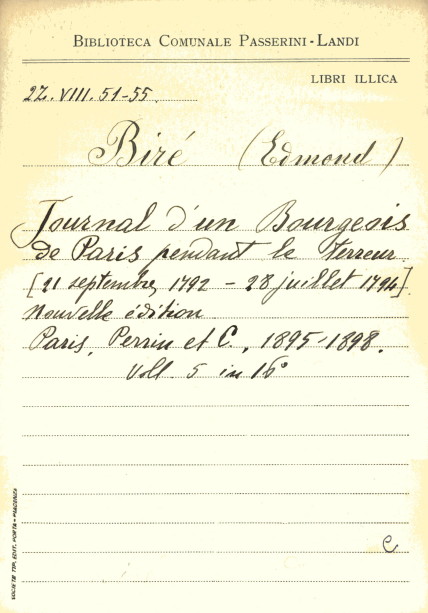 BIBLIOTECA COMUNALE PASSERINI-LANDI
LIBRI ILLICA
2Z. VIII. 51-55.
Biré (Edmond)
Journal d'un Bourgeois
de Paris pendant le terreur
[21 septembre, 1792 - 28 juillet 1794]
Nouvelle édition
Paris, Perrin et C., 1895-1898.
Voll. 5 in 16°
C
SOCIETÀ TIP. EDIT. PORTA - PIACENZA